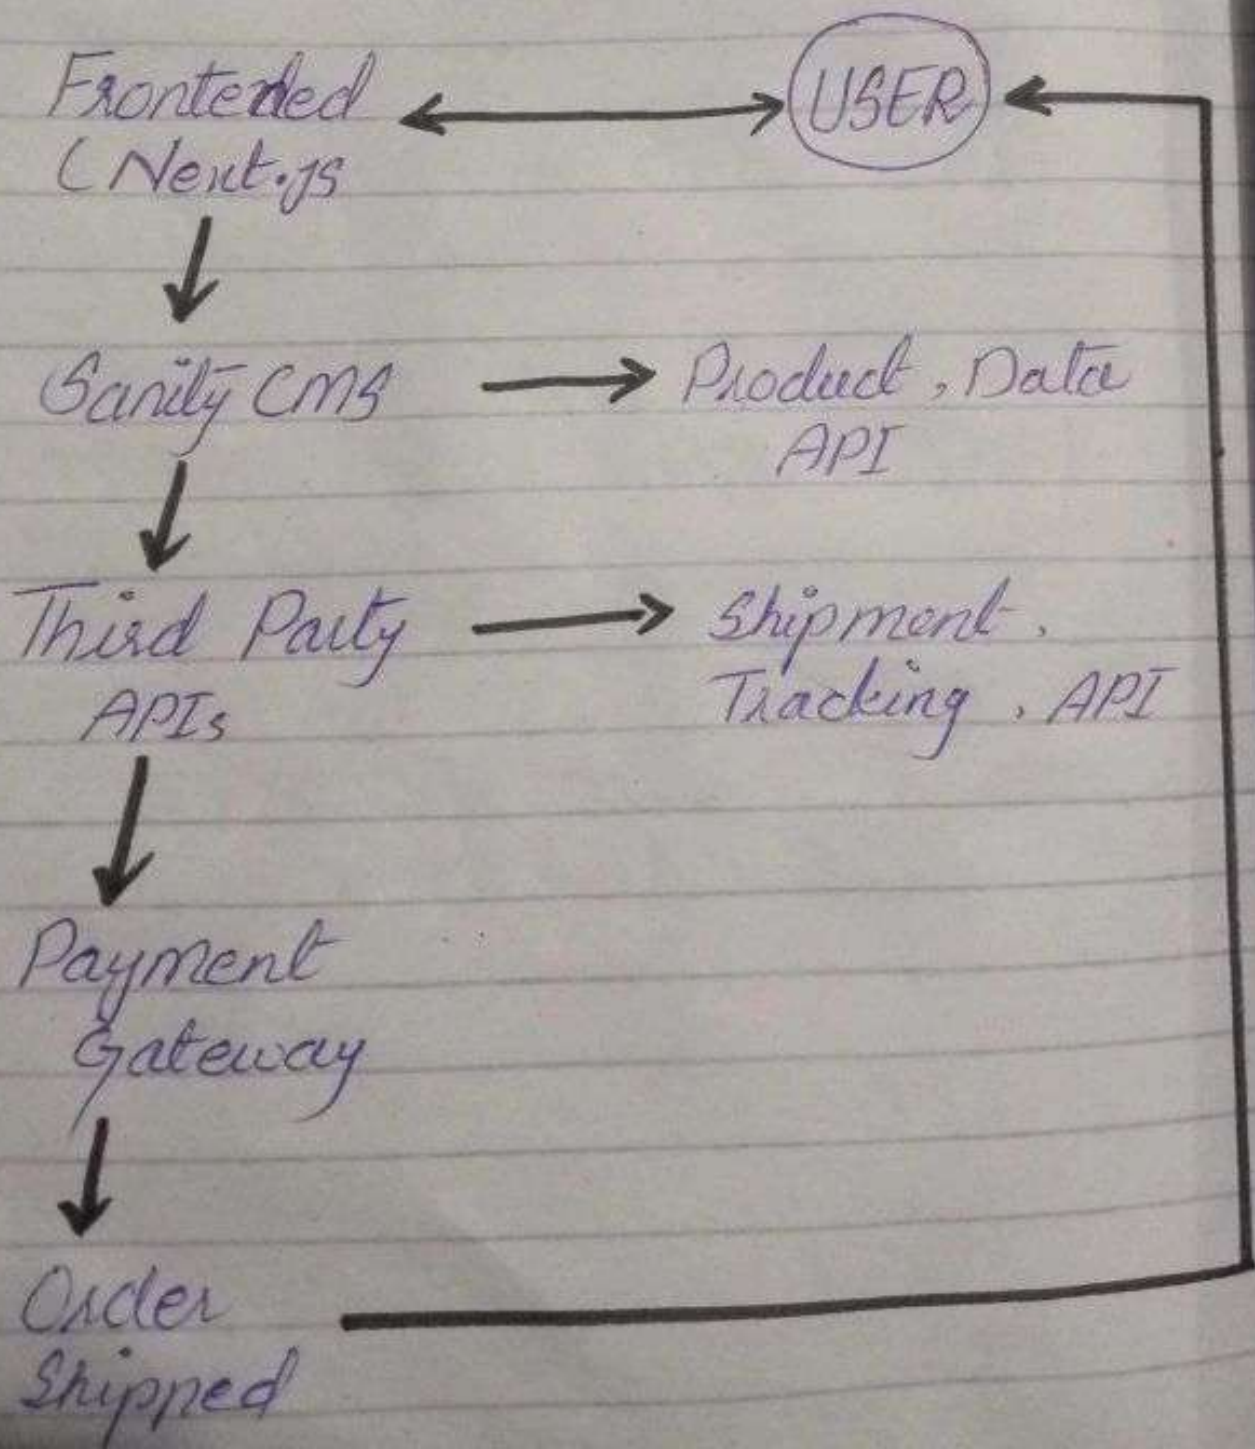 Frontended
USER
( Next.js
Sanity CMS
Product, Data
API
Third Party
APIs
Shipment,
Tracking, API
Payment
Gateway
Order
Shipped